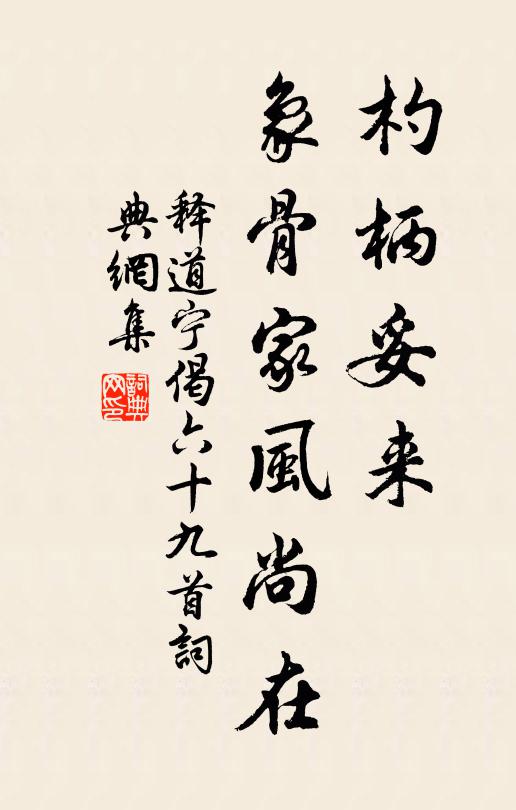 杓柄妥来
象骨家風尚在
释道宁偈六十九首詞
典網集
詞典
网印